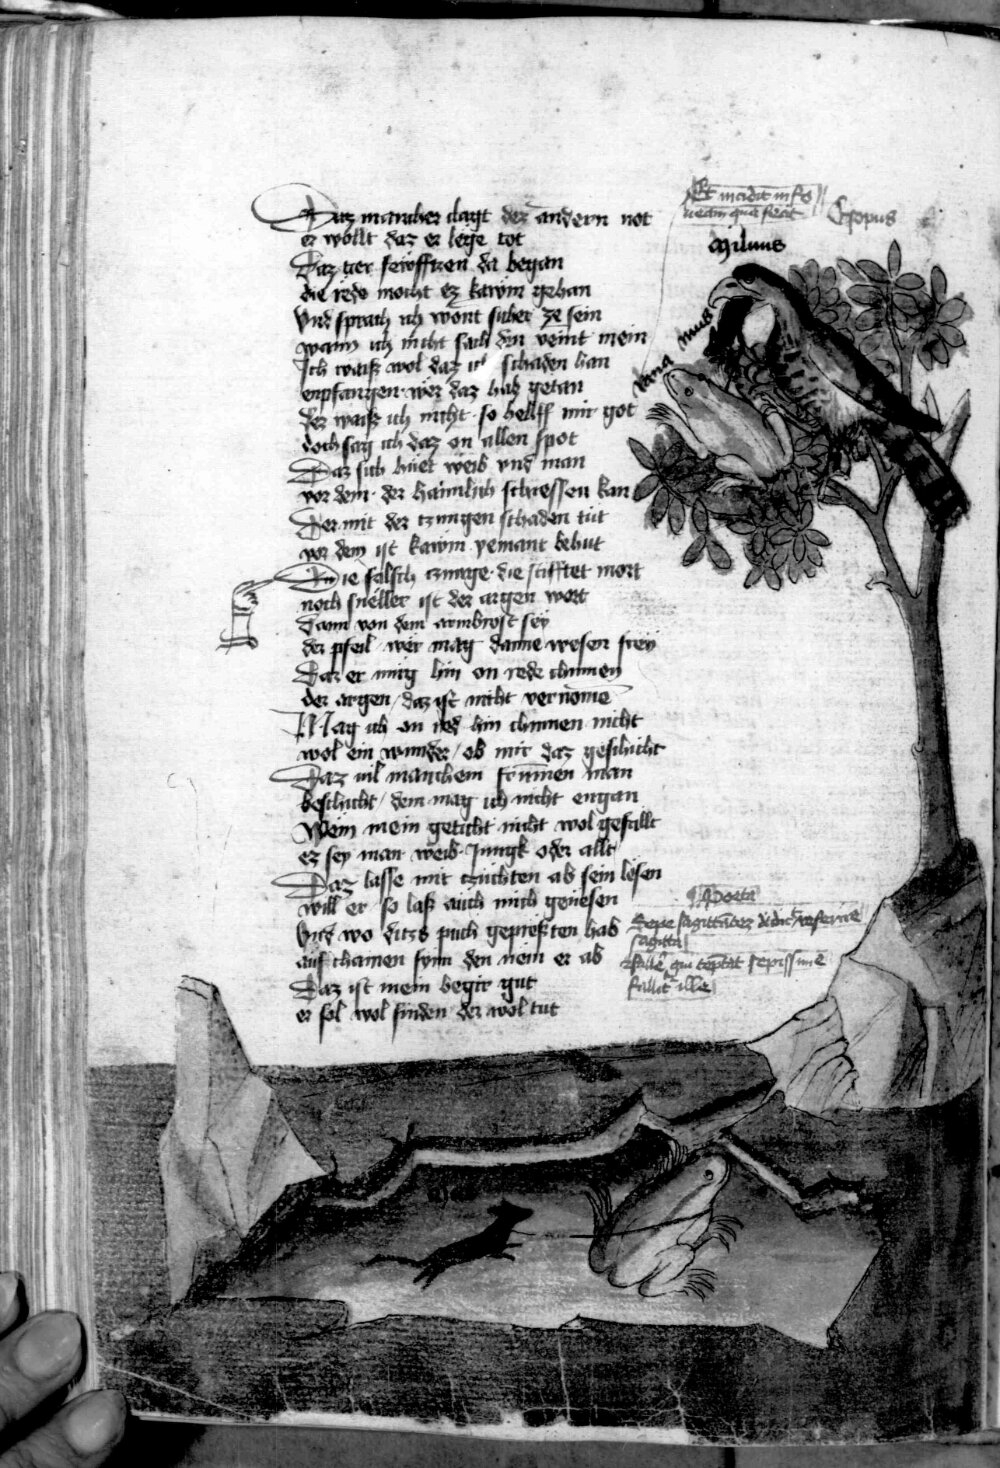 Et incidit in fo
ueam quam fecit
Esopus
Miluus
mus
Rana
Daz mancher clagt dez andern not
er wöllt daz er lëge tot
Daz tier seüfftzen da began
die rede mocht ez kawm gehan
Vnd sprach ich wont sicher ze sein
wann ich nicht sach den veint mein
Ich waiß wol daz ich schaden han
enpfangen wer daz hab getan
der waiß ich nicht so hellff mir got
doch sag ich daz on allen spot
Daz sich hüet weib vnd man
vor dem der haimlich schiessen kan
Der mit der tzungen schaden tüt
vor dem ist kawm yemant behut
Die falsch tzunge die stifftet mort
noch sneller ist der argen wort
Dann von dem armbrost sey
der pfeil wër mag danne wesen frey
Daz er müg hin on rede chumen
der argen daz ist nicht vernomē
Mag ich on red hin chumen nicht
wol ein wunder ob mir daz geschicht
Daz vil manchem frummen man
beschicht dem mag ich nicht engan
Wem mein geticht nicht wol gefallt
ez sey man weib Jungk oder allt
Daz lasse mit tzüchten ab sein lësen
will er so laß auch mich genesen
Vnd wo ditzs puch gepreßten hab
auf chainen synn den nem er ab
Daz ist mein begir gut
er sol wol finden der wol tut
Poeta
Sepe sagittantez didicit referire
sagitta
qui temptat sepissime
fallit ille